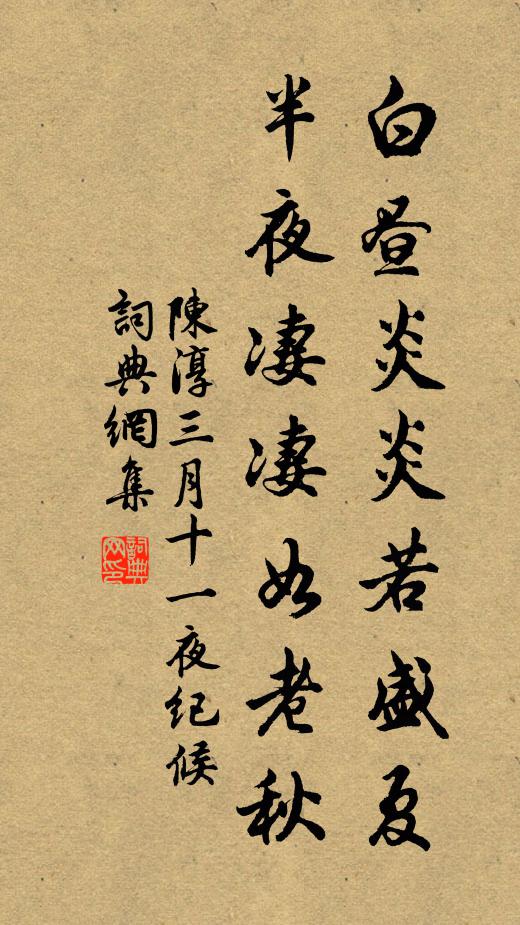 白晝炎炎若盛夏
半夜淒淒如老秋
陳淳三月十一夜紀候
詞典網集
詞典網印